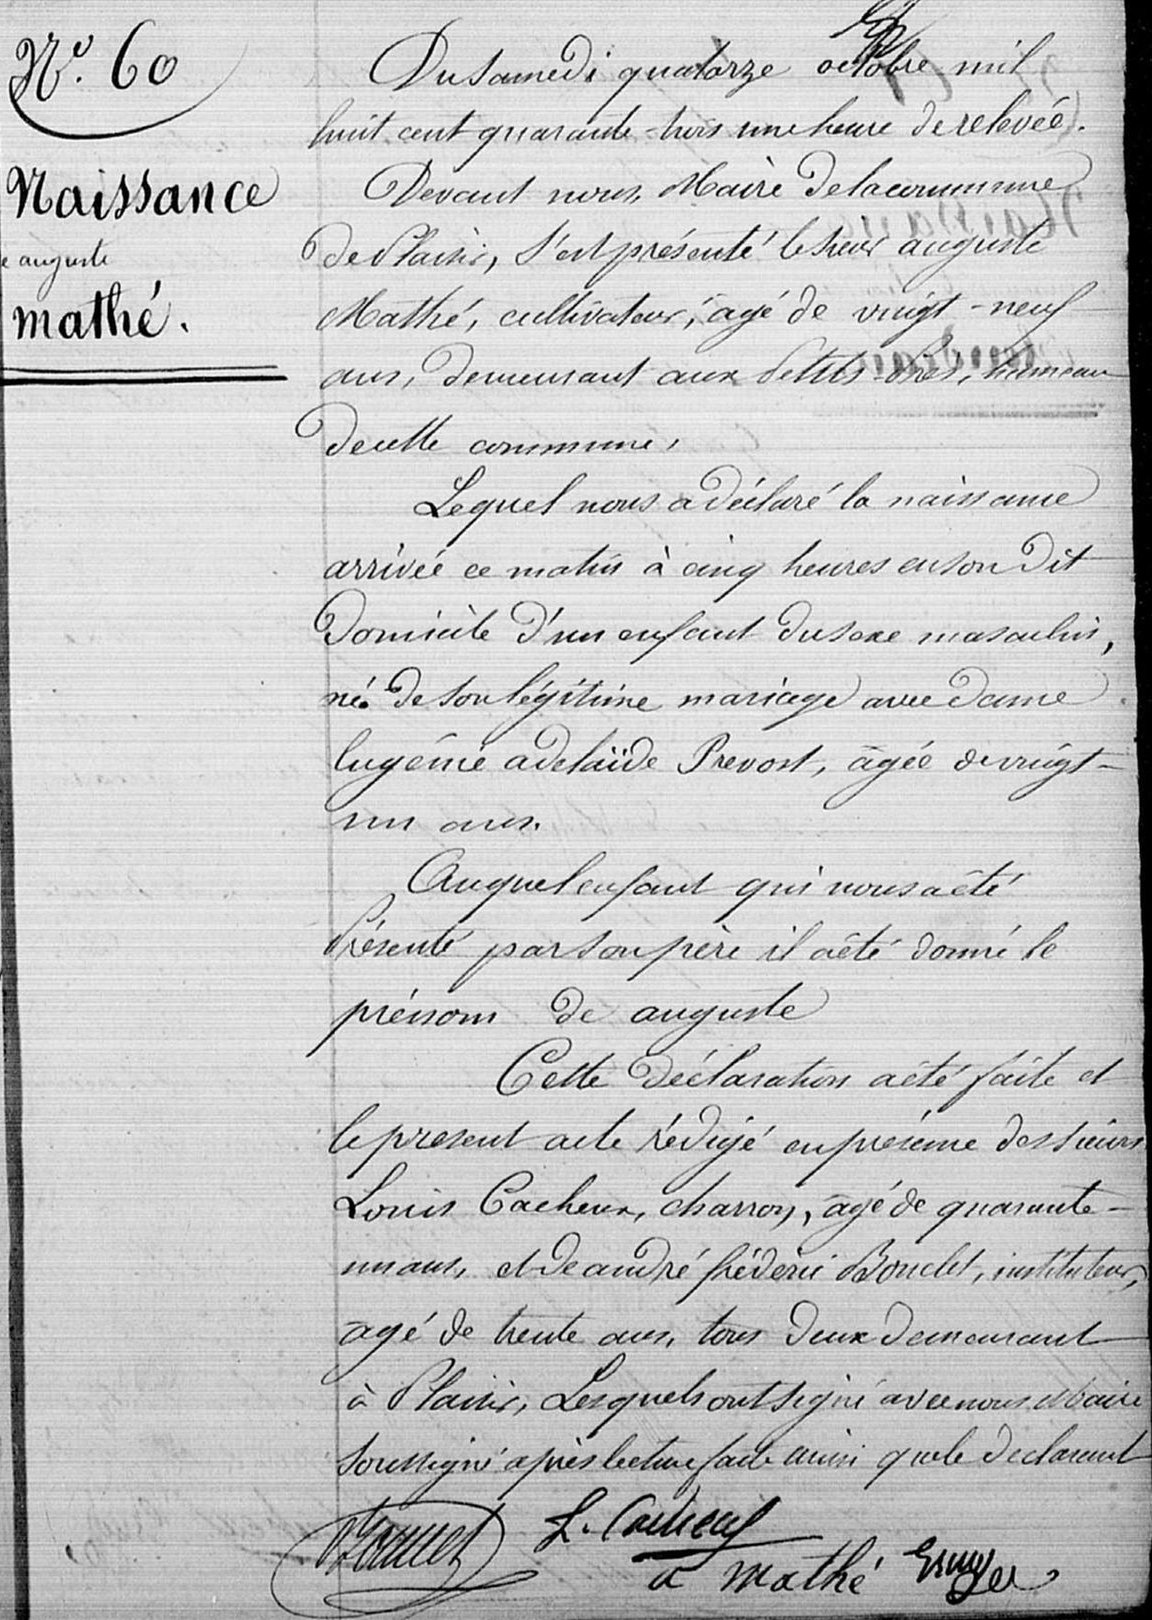 N°. 60
Naissance
e auguste
mathé.
Du Samedi quatorze octobre mil
huit cent quarante-trois une heure de relevée.
Devant nous, Maire de la commune
de Plaisir, s'est présenté le sieur auguste
Mathé, cultivateur, agé de vingt-neuf
ans, demeurant aux Petits-Prés, hameau
de cette commune,
Lequel nous a déclaré la naissance
arrivée ce matin à cinq heures en son dit
Domicile d'un enfant du sexe masculin,
né de son légitime mariage avec dame
Eugénie adelaïde Prevost, âgée de vingt-
un ans.
Auquel enfant qui nous a été
Présenté par son père il a été donné le
prénom de auguste
Cette déclaration a été faite et
le present acte rédigé en présence des sieurs
Louis Cacheux, charron, âgé de quarante-
un ans, et de andré fréderic Bouclet, instituteur,
agé de trente ans, tous deux demeurant
à Plaisir, Lesquels ont signé avec nous Maire
soussigné après lecture faite ainsi que le declarant
Bouclet L. Cacheux
a mathé